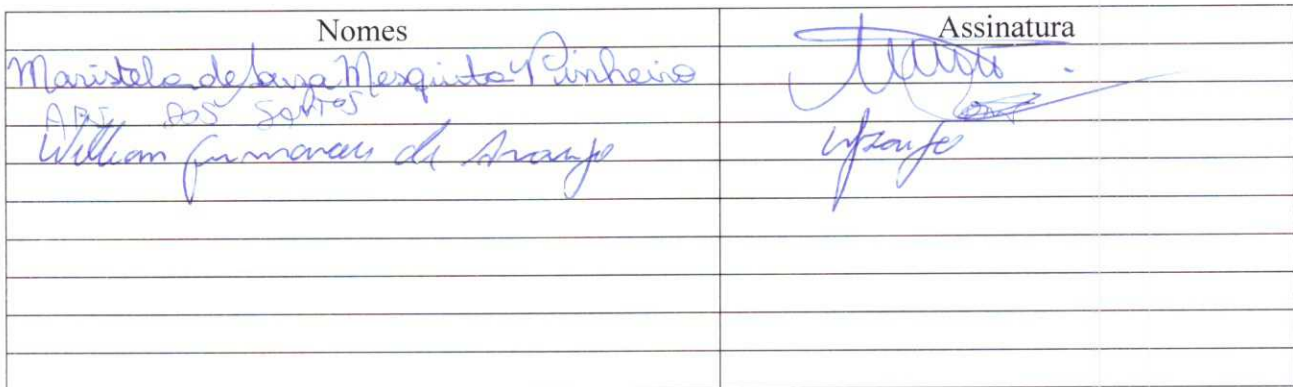 Nomes Assinatura
Maristela de Souza Mesquita Pinheiro
ARI DOS SANTOS
William Guimarães de Araujo